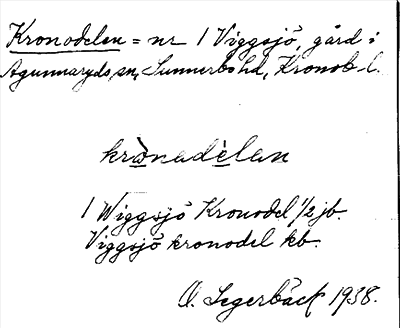 Kronodelen = nr 1 Viggsjö, gård i
Agunnaryds sn, Sunnerbo hd, Kronob. l.
krònadèlan
1 Wiggsjö Kronodel 1/2 jb.
Viggsjö kronodel kb.
O. Segerbäck 1938.